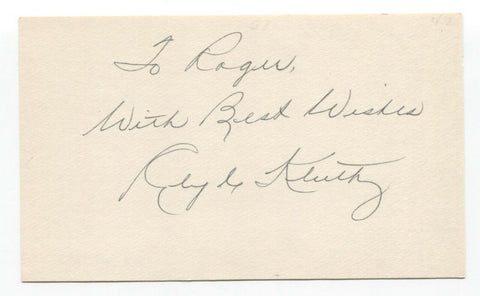 To Roger,
With Best Wishes
Clyde Kluttz